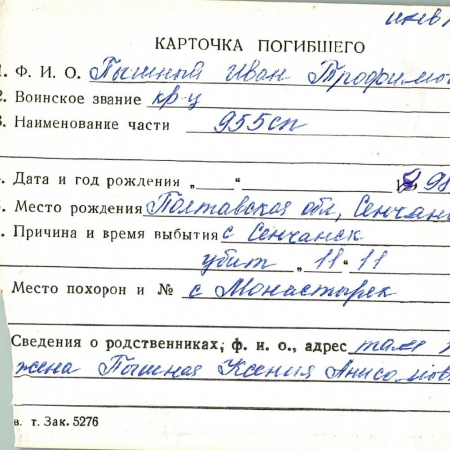 инв
КАРТОЧКА ПОГИБШЕГО
1. Ф. И. О. Пышный Иван Трофимов
2. Воинское звание кр-ц
3. Наименование части 955сп
. Дата и год рождения „ “ 98
. Место рождения Полтавская обл, Сенчанс
. Причина и время выбытия с Сенчанск
убит „11“ 11
Место похорон и № с Монастырек
Сведения о родственниках, ф. и. о., адрес там
жена Пышная Ксения Анисамов
в. т. Зак. 5276